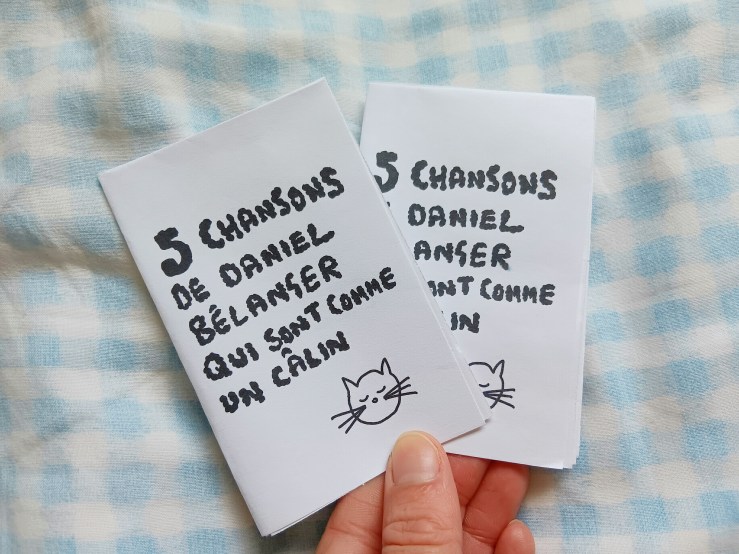 5 CHANSONS
DE DANIEL
BÉLANGER
QUI SONT COMME
UN CÂLIN
5 CHANSONS
DANIEL
ANGER
ANT COMME
IN